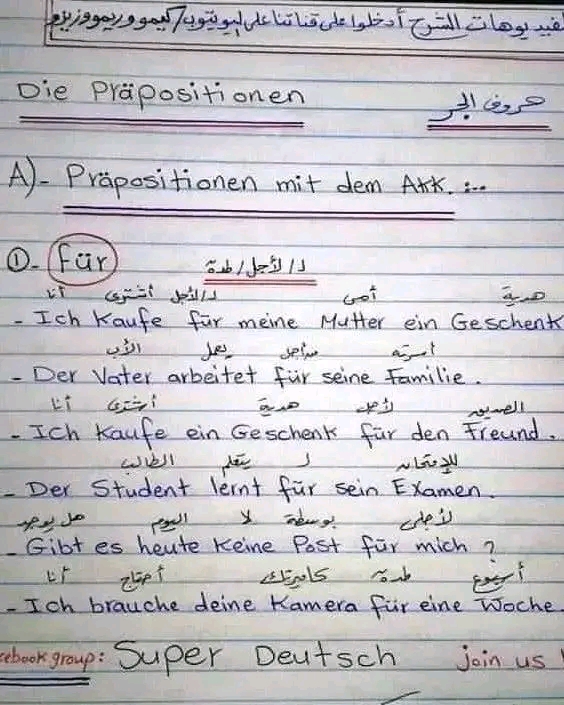 لفيديوهات الشرح أدخلوا على قناتنا على ليوتيوب/كيمو وريمو وزيزو
Die Präpositionen حروف الجر
A)- Präpositionen mit dem Akk. :--
①- für لـ/لأجل/لمدة
أنا أشترى لـ/لأجل أمى هدية
- Ich kaufe für meine Mutter ein Geschenk
الأب يعمل من أجل أسرته
- Der Vater arbeitet für seine Familie.
أنا أشترى هدية لأجل الصديق
- Ich kaufe ein Geschenk für den Freund.
الطالب يتعلم لـ للإمتحان
- Der Student lernt für sein Examen.
هل يوجد اليوم لا بوسطة لأجلى
- Gibt es heute keine Post für mich ?
أنا أحتاج كاميرتك لمدة أسبوع
- Ich brauche deine Kamera für eine Woche.
cebook group: Super Deutsch join us !